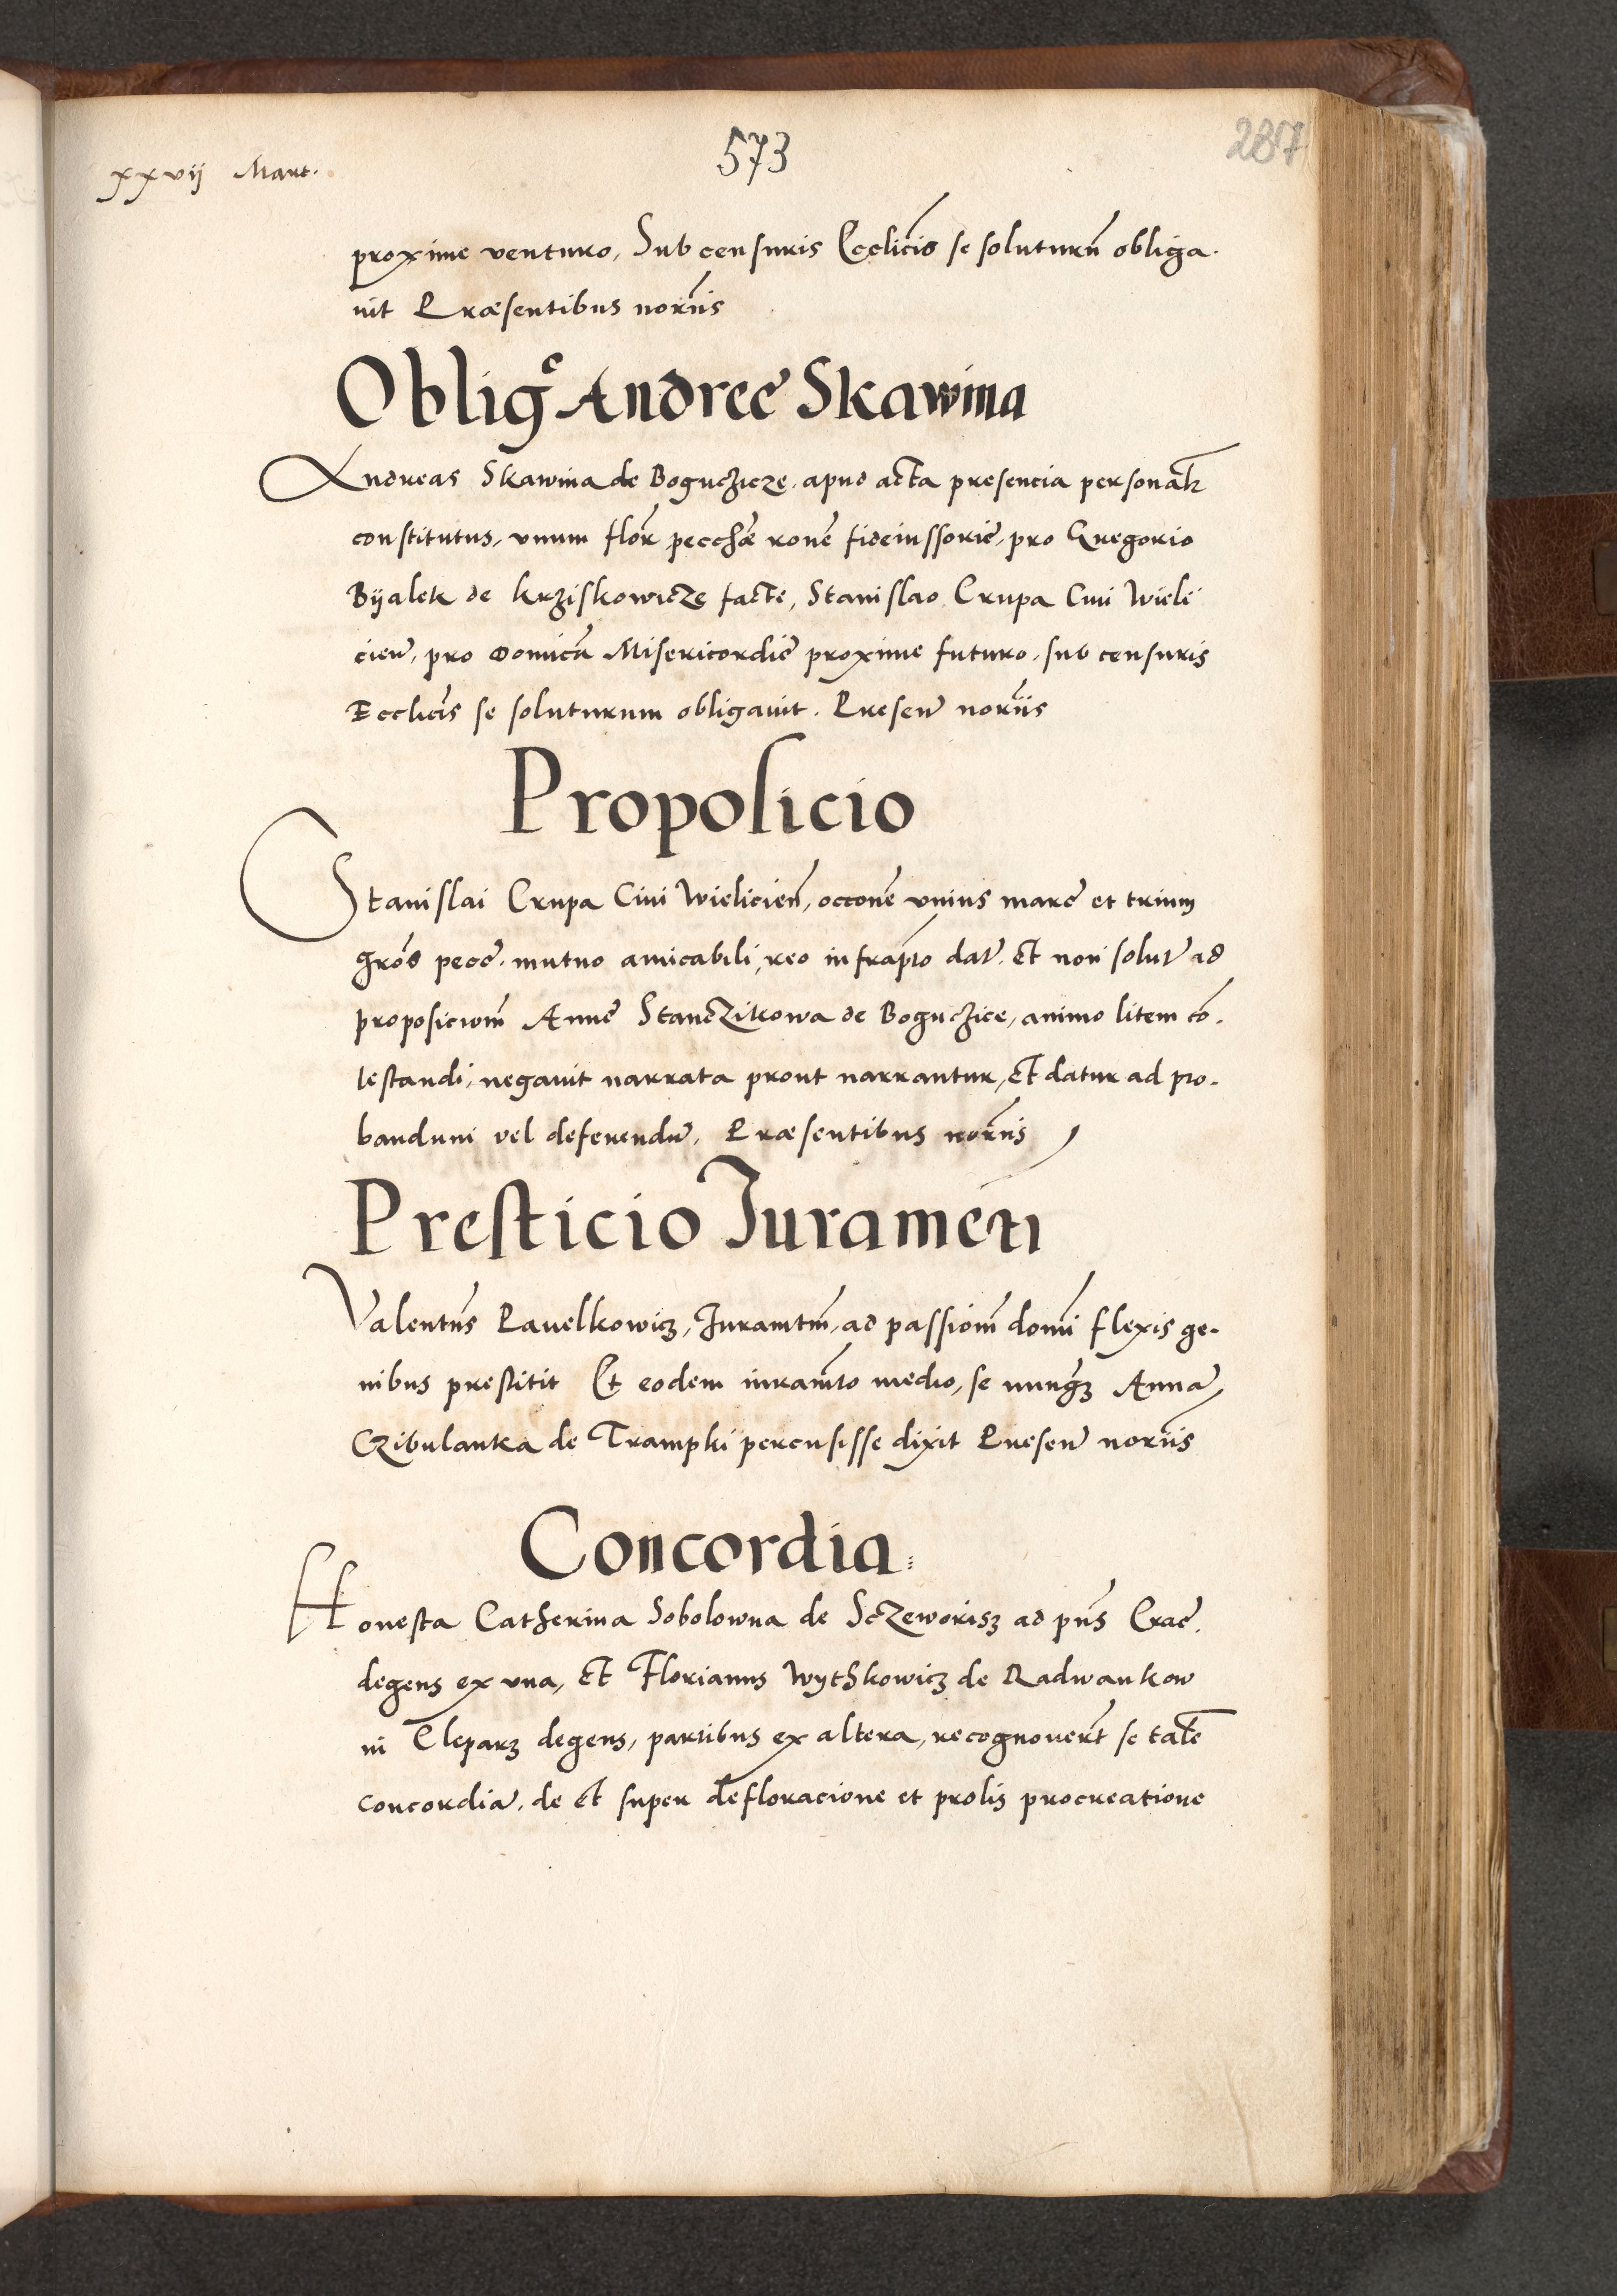 573
287
xxvij Mart.
proxime venturo, Sub censuris Ecclicis se soluturũ obliga.
uit Præsentibus norijs
Oblige Andree Skawina
Andreas Skawina de Boguchicze. apud acta presencia personalr
constitutus, vnum flor pecchæ ronẽ fideiussorie, pro Gregorio
Bijalek de krziskowicze facte, Stanislao Crupa Ciui Wieli
cien, pro domicã Misericordie proxime futuro. sub censuris
Ecclicis se soluturum obligauit. Presen norijs
Propolicio
Stanislai Crupa Ciui Wielicien, occone vnius marc et trium
gros pecc. mutuo amicabili, reo infrapto dat. et non solut ad
proposiciom Anne Stanczikowa de Boguchice, animo litem cõ.
testandi, negauit narrata prout narrantur, et datur ad pro.
bandum vel deferendũ. Præsentibus norijs
Presticio Juramẽti
Valentns Pauelkowicz, Juramtm, ad passionẽ domi flexis ge.
nibus prestitit Et eodem iuramto medio, se nunqz Annã
Czibulanka de Trampki percusisse dixit Presen norijs
Concordia
Honesta Catherina Sobolowna de Sczeworisz ad pns Crac.
degens ex vna, et Florianus Wythkowicz de Radwankow
in Cleparz degens, partibus ex altera, recognouert se talẽ
concordiã. de et super defloracione et prolis procreatione